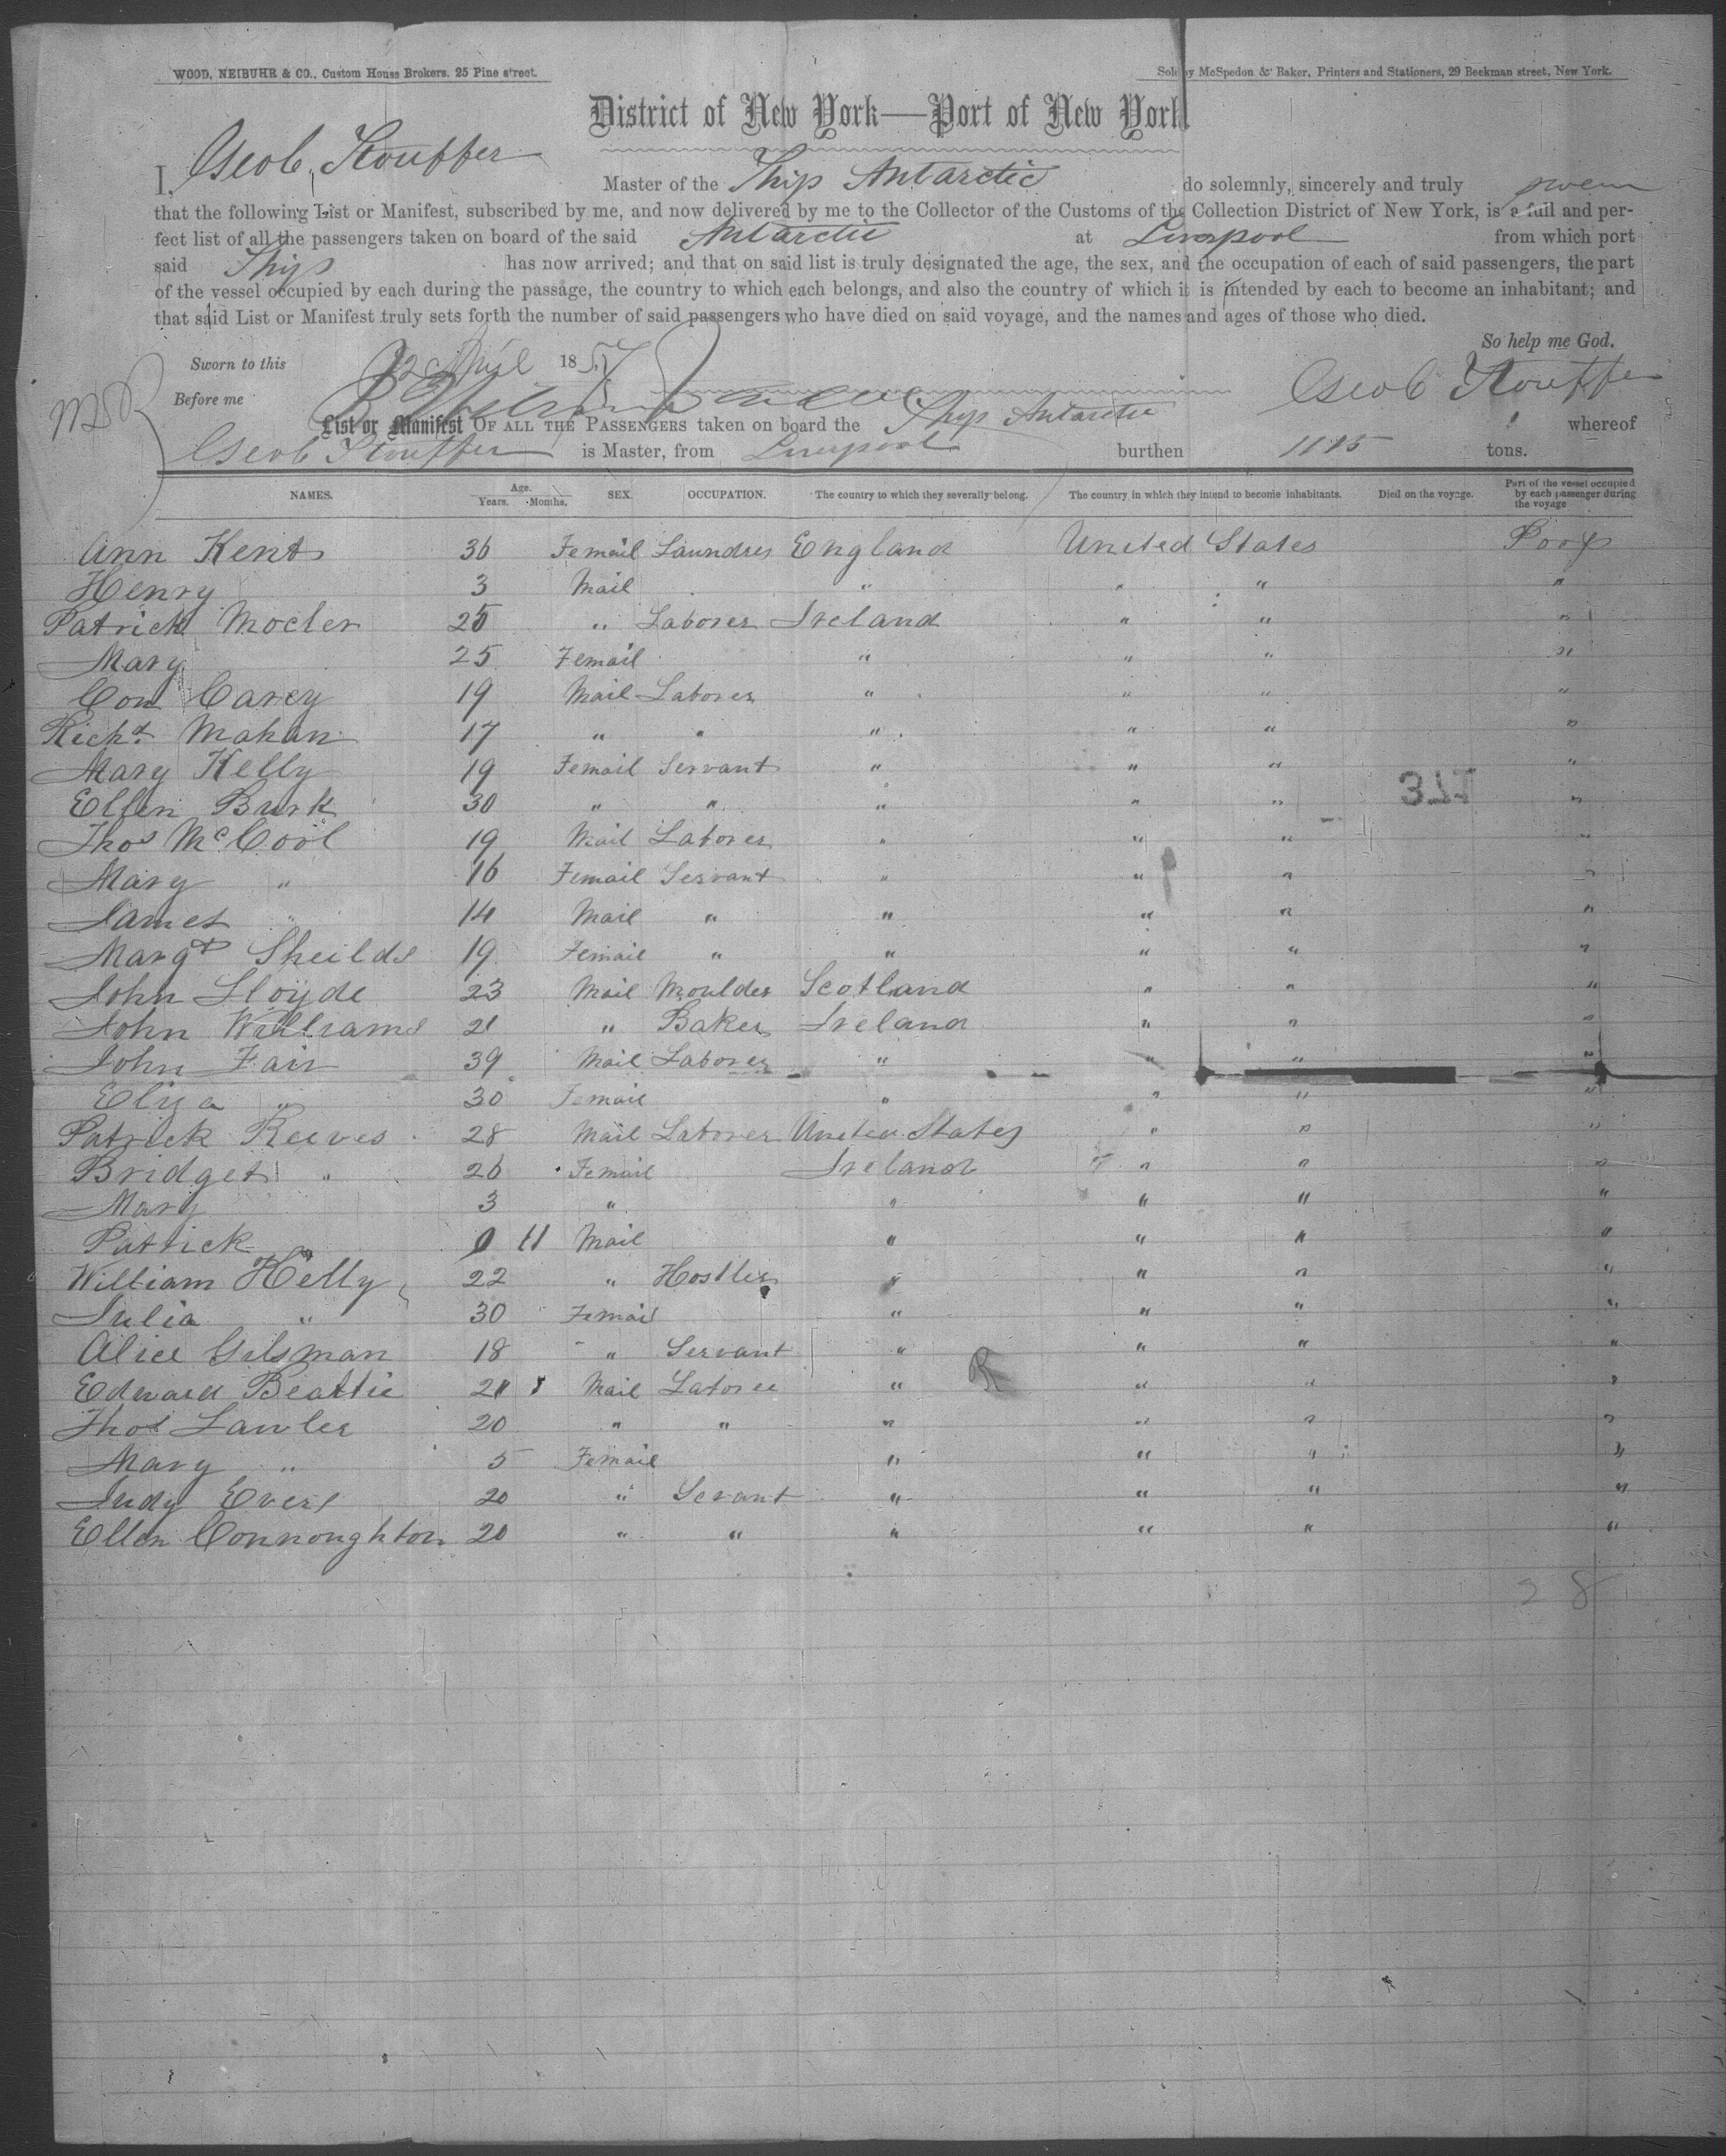 WOOD, NEIBUHR & CO., Custom House Brokers. 25 Pine street.
Sold by McSpedon & Baker, Printers and Stationers, 29 Beekman street, New York.
District of New York—Port of New York
I, Geo C Stouffer Master of the Ship Antarctic do solemnly, sincerely and truly swear
that the following List or Manifest, subscribed by me, and now delivered by me to the Collector of the Customs of the Collection District of New York, is a full and per-
fect list of all the passengers taken on board of the said Antarctic at Liverpool from which port
said Ship has now arrived; and that on said list is truly designated the age, the sex, and the occupation of each of said passengers, the part
of the vessel occupied by each during the passage, the country to which each belongs, and also the country of which it is intended by each to become an inhabitant; and
that said List or Manifest truly sets forth the number of said passengers who have died on said voyage, and the names and ages of those who died.
So help me God.
Sworn to this April 1857
Before me Geo C Stouffer
List or Manifest OF ALL THE PASSENGERS taken on board the Ship Antarctic whereof
Geo C Stouffer is Master, from Liverpool burthen 1115 tons.
NAMES. Age. Years. Months. SEX. OCCUPATION. The country to which they severally belong. The country in which they intend to become inhabitants. Died on the voyage. Part of the vessel occupied by each passenger during the voyage
Ann Kent 36 Femail Laundres England United States Poop
Henry 3 Mail " " " "
Patrick Mocler 25 " Laborer Ireland " " "
Mary 25 Femail " " " "
Con Carey 19 Mail Laborer " " " "
Richd. Mahan 17 " " " " " "
Mary Kelly 19 Femail Servant " " " "
Ellen Burk 30 " " " " " "
377
Thos McCool 19 Mail Laborer " " " "
Mary " 16 Femail Servant " " " "
James " 14 Mail " " " " "
Margt Sheilds 19 Femail " " " " "
John Lloyde 23 Mail Moulder Scotland " " "
John Williams 21 " Baker Ireland " " "
John Fair 39 Mail Laborer " " " "
Eliza " 30 Femail " " " "
Patrick Reeves 28 Mail Laborer United States " " "
Bridget " 26 Femail Ireland " " "
Mary 3 " " " " "
Patrick 0 11 Mail " " " "
William Kelly 22 " Hostler " " " "
Julia " 30 Femail " " " "
Alice Gilsman 18 " Servant " " " "
Edward Beattie 21 Mail Laborer " " " "
Thos Lawler 20 " " " " " "
Mary " 5 Femail " " " "
Judy Evers 20 " Servant " " " "
Ellen Connoughton 20 " " " " " "
28